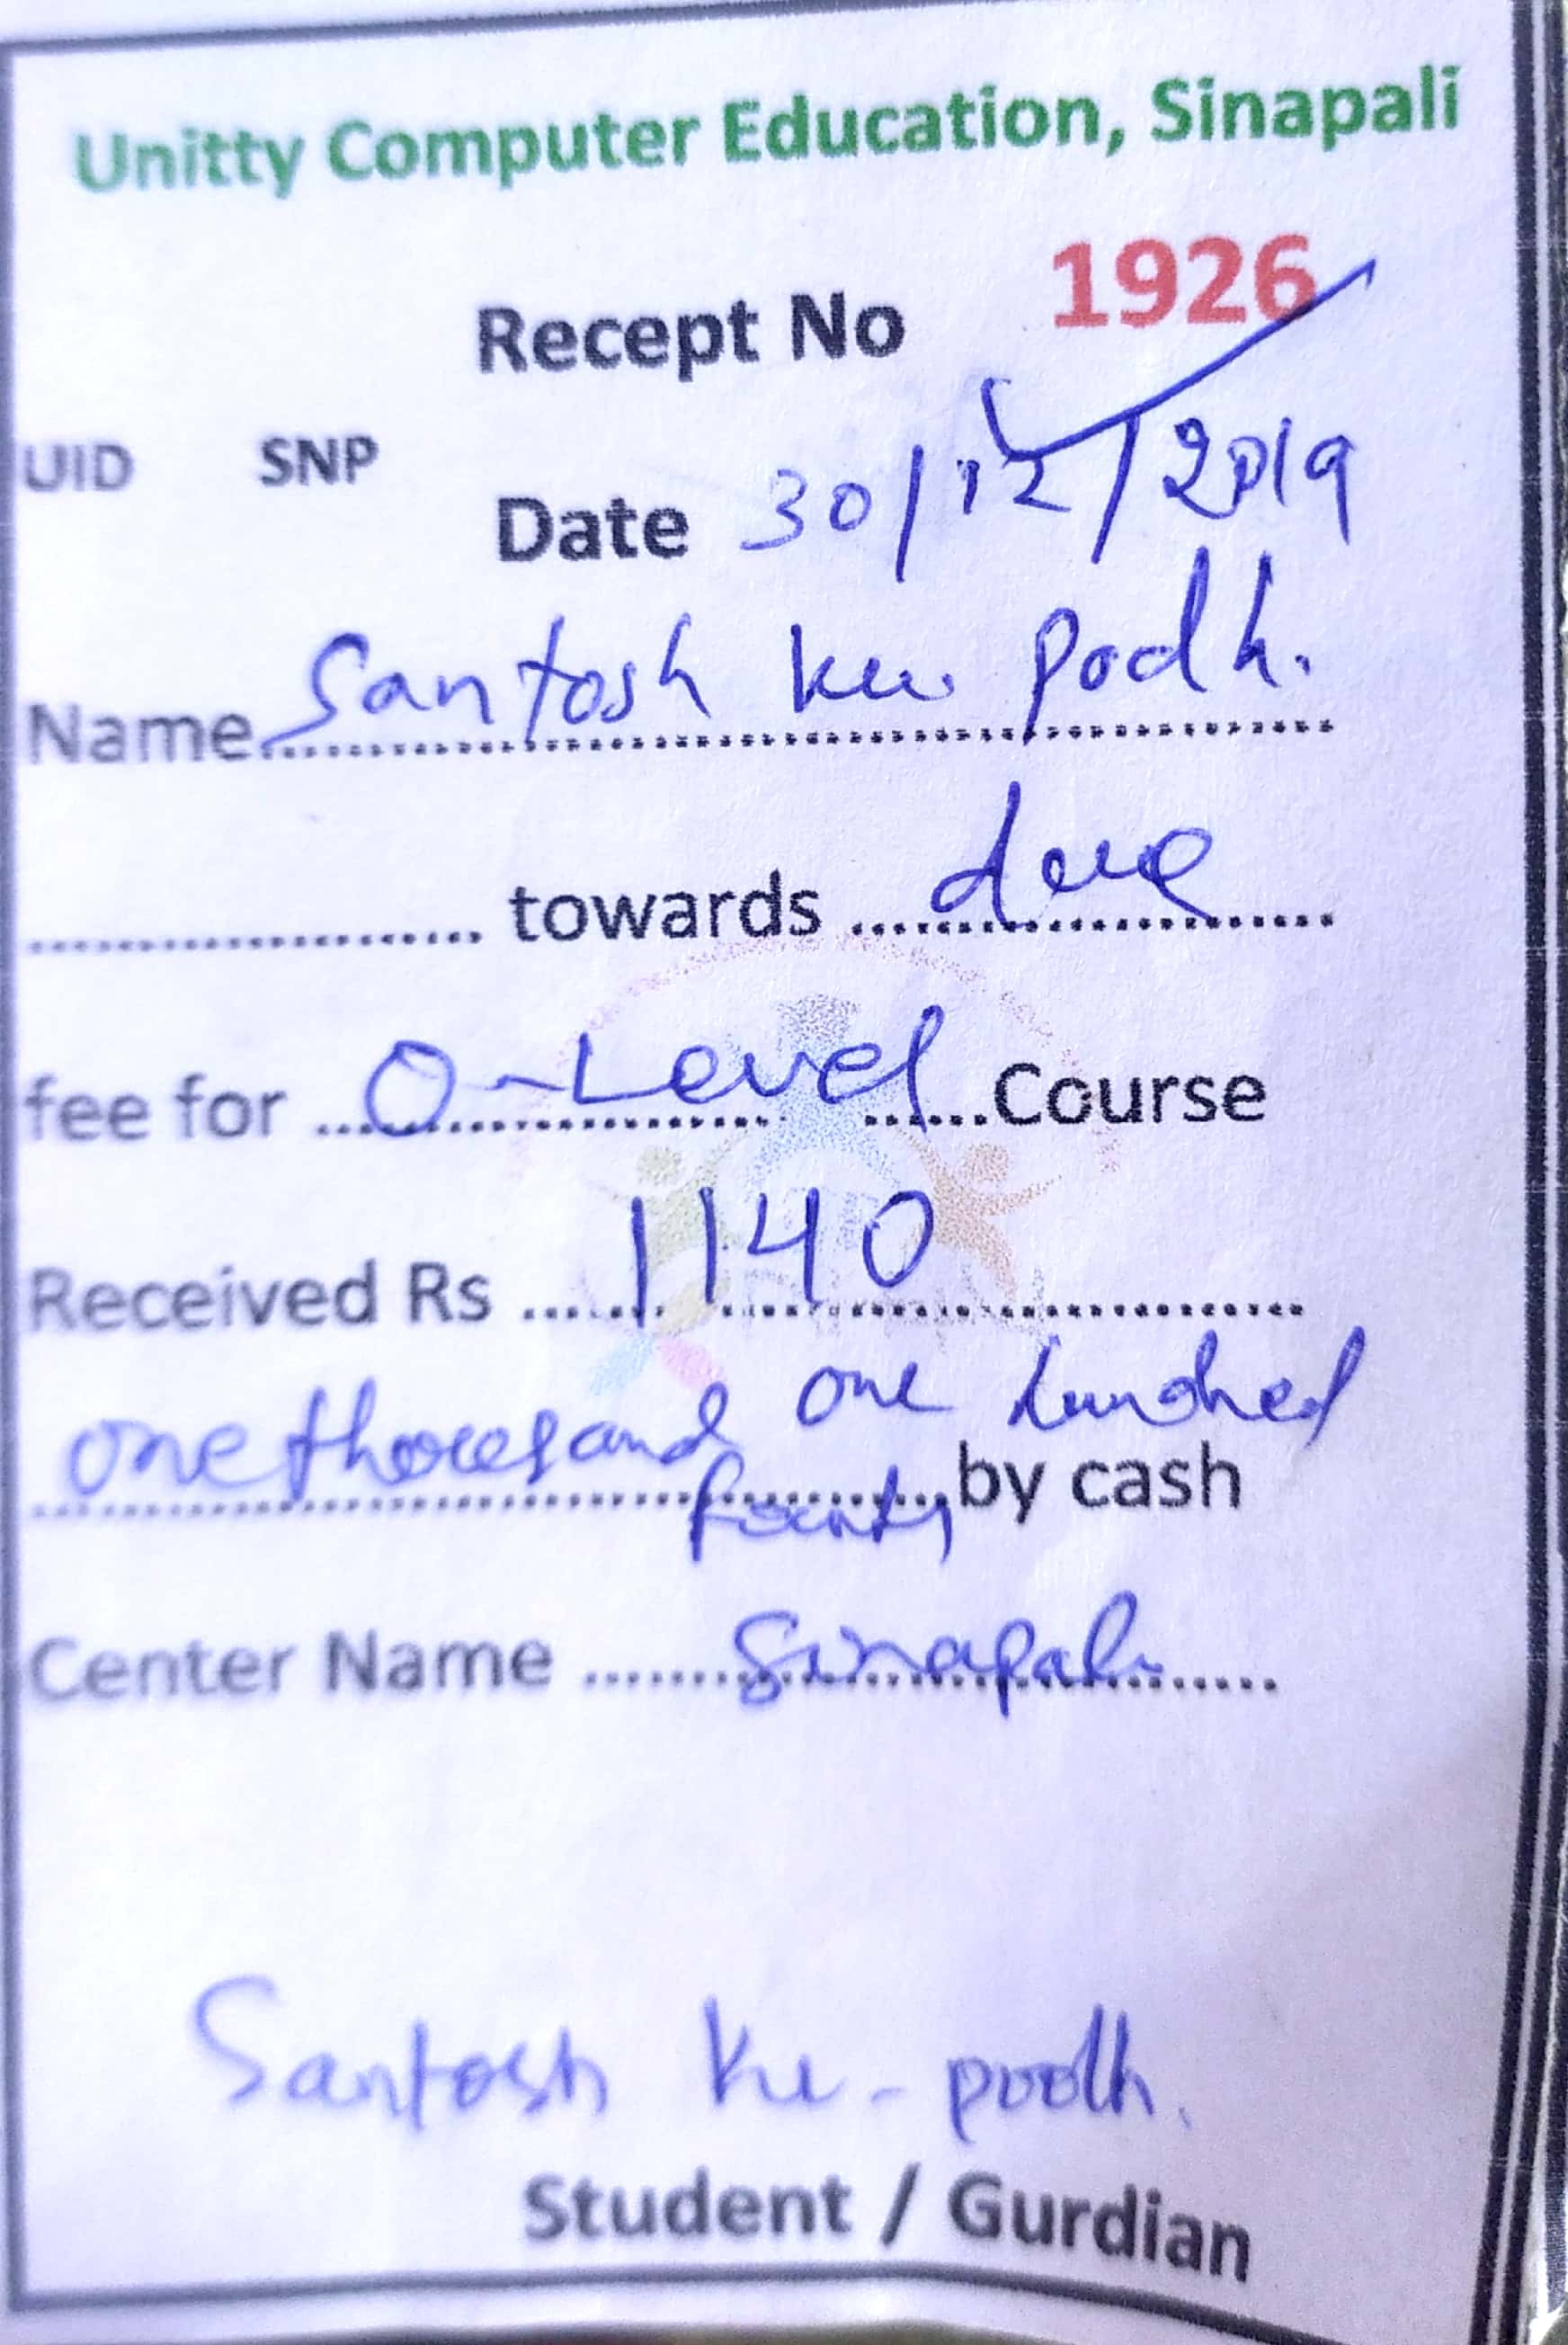 Unitty Computer Education, Sinapali
Recept No 1926
UID SNP
Date 30/12/2019
Name Santosh ku. podh.
towards due
fee for O-Level Course
Received Rs 1140
one thousand one hundred
fourty by cash
Center Name Sinapali
Santosh Ku - podh.
Student / Gurdian